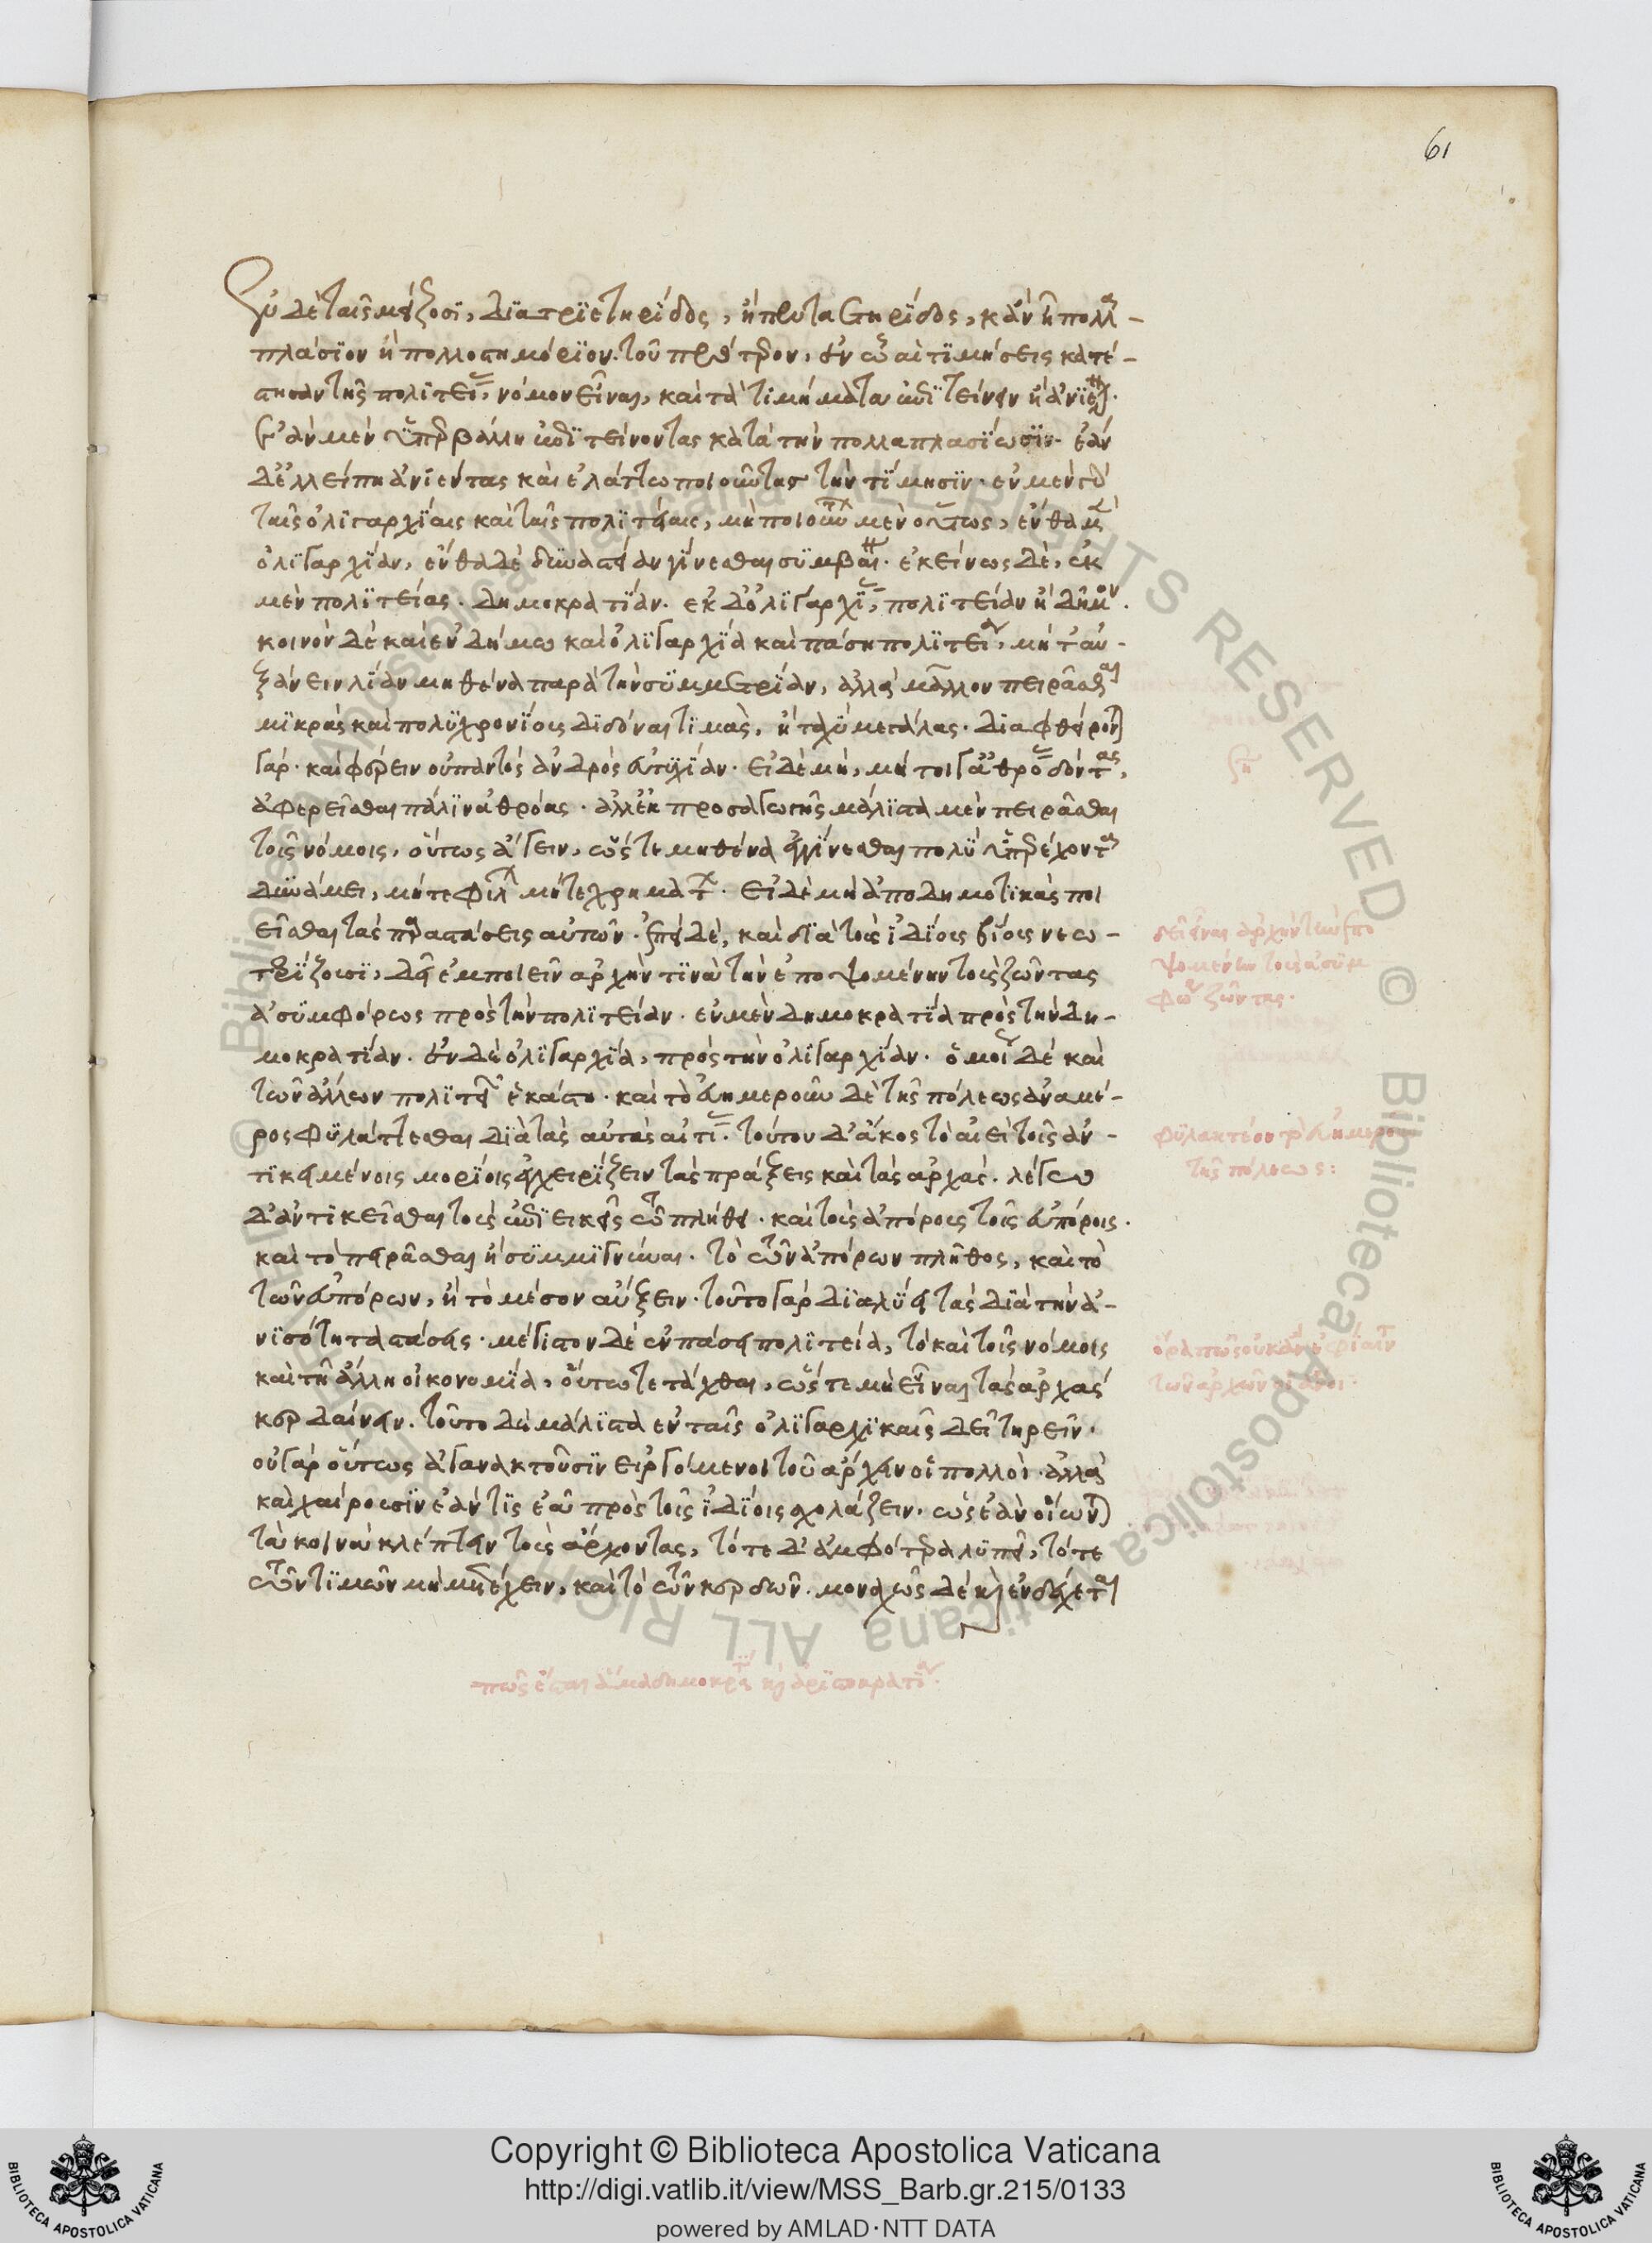 61
ἐν δὲ ταῖς μείζοσι, διὰ τριετηρίδος, ἢ πενταετηρίδος, κἂν ᾖ πολλα-
πλάσιον ἢ πολλοστημόριον τοῦ πρότερον, ἐν ᾧ αἱ τιμήσεις κατέ-
στησαν τῆς πολιτείας, νόμον εἶναι, καὶ τὰ τιμήματα ἐπιτείνειν ἢ ἀνιέναι.
ἐὰν μὲν ὑπερβάλλη ἐπιτείνοντας κατὰ τὴν πολλαπλασίωσιν. ἐὰν
δ' ἐλλείπη ἀνιέντας καὶ ἐλάττω ποιοῦντας τὴν τίμησιν. ἐν μὲν οὖν
ταῖς ὀλιγαρχίαις καὶ ταῖς πολιτείαις, μὴ ποιούντων μὲν οὕτως, ἔνθα μὲν
ὀλιγαρχίαν, ἔνθα δὲ δυναστείαν γίνεσθαι συμβαίνει. ἐκείνως δὲ, ἐκ
μὲν πολιτείας. δημοκρατίαν. ἐκ δ' ὀλιγαρχίας, πολιτείαν ἢ δῆμον.
κοινὸν δὲ καὶ ἐν δήμω καὶ ὀλιγαρχία καὶ πάση πολιτεία, μήτ' αὐ-
ξάνειν λίαν μηθένα παρὰ τὴν συμμετρίαν, ἀλλὰ μᾶλλον πειρᾶσθαι
μικρὰς καὶ πολυχρονίους διδόναι τιμὰς, ἢ ταχὺ μεγάλας. διαφθείρονται
γάρ. καὶ φέρειν οὐ παντὸς ἀνδρὸς εὐτυχίαν. εἰ δὲ μὴ, μή τοι γ' ἀθρόας δόντας,
ἀφαιρεῖσθαι πάλιν ἀθρόας. ἀλλ' ἐκ προσαγωγῆς μάλιστα μὲν πειρᾶσθαι
τοῖς νόμοις, οὕτως ἄγειν, ὥστε μηθένα ἐγγίνεσθαι πολὺ ὑπερέχοντα
δυνάμει, μήτε φίλων μήτε χρημάτων. εἰ δὲ μὴ ἀποδημοτικὰς ποι
εῖσθαι τὰς παραστάσεις αὐτῶν. ἐπεὶ δὲ, καὶ διὰ τοὺς ἰδίους βίους νεω-
τερίζουσι, δεῖ ἐμποιεῖν ἀρχήν τινα τὴν ἐποψομένην τοὺς ζῶντας
ἀσυμφόρως πρὸς τὴν πολιτείαν. ἐν μὲν δημοκρατία πρὸς τὴν δη-
μοκρατίαν. ἐν δὲ ὀλιγαρχία, πρὸς τὴν ὀλιγαρχίαν. ὁμοίως δὲ καὶ
τῶν ἄλλων πολιτειῶν ἑκάστη. καὶ τὸ εὐημεροῦν δὲ τῆς πόλεως ἀνὰ μέ-
ρος φυλάττεσθαι διὰ τὰς αὐτὰς αἰτίας. τούτου δ' ἄκος τὸ αἰεὶ τοῖς ἀν-
τικειμένοις μορίοις ἐγχειρίζειν τὰς πράξεις καὶ τὰς ἀρχάς. λέγω
δ' ἀντικεῖσθαι τοὺς ἐπιεικεῖς τῶ πλήθει. καὶ τοὺς ἀπόρους τοῖς εὐπόροις.
καὶ τὸ πειρᾶσθαι ἢ συμμιγνύναι. τὸ τῶν ἀπόρων πλῆθος, καὶ τὸ
τῶν εὐπόρων, ἢ τὸ μέσον αὔξειν. τοῦτο γὰρ διαλύει τὰς διὰ τὴν ἀ-
νισότητα στάσεις. μέγιστον δὲ ἐν πάση πολιτεία, τὸ καὶ τοῖς νόμοις
καὶ τῆ ἄλλη οἰκονομία, οὕτω τετάχθαι, ὥστε μὴ εἶναι τὰς ἀρχὰς
κερδαίνειν. τοῦτο δὲ μάλιστα ἐν ταῖς ὀλιγαρχικαῖς δεῖ τηρεῖν.
οὐ γὰρ οὕτως ἀγανακτοῦσιν εἰργόμενοι τοῦ ἄρχειν οἱ πολλοὶ. ἀλλὰ
καὶ χαίρουσιν ἐάν τις ἐᾶ πρὸς τοῖς ἰδίοις σχολάζειν. ὡς ἐὰν οἴωνται
τὰ κοινὰ κλέπτειν τοὺς ἄρχοντας, τότε δ' ἀμφότερα λυπεῖ, τό τε
τῶν τιμῶν μὴ μετέχειν, καὶ τὸ τῶν κερδῶν. μοναχῶς δὲ καὶ ἐνδέχεται
δεῖ εἶναι ἀρχὴν τὴν ἐπο
ψομένην τοὺς ἀσυμ
φόρως ζῶντας.
φυλακτέον τὸ εὐημεροῦν
τῆς πόλεως:
πῶς ἔσται ἅμα δημοκρατία καὶ ἀριστοκρατία.
Copyright © Biblioteca Apostolica Vaticana
http://digi.vatlib.it/view/MSS_Barb.gr.215/0133
powered by AMLAD·NTT DATA
BIBLIOTECA APOSTOLICA VATICANA
BIBLIOTECA APOSTOLICA VATICANA